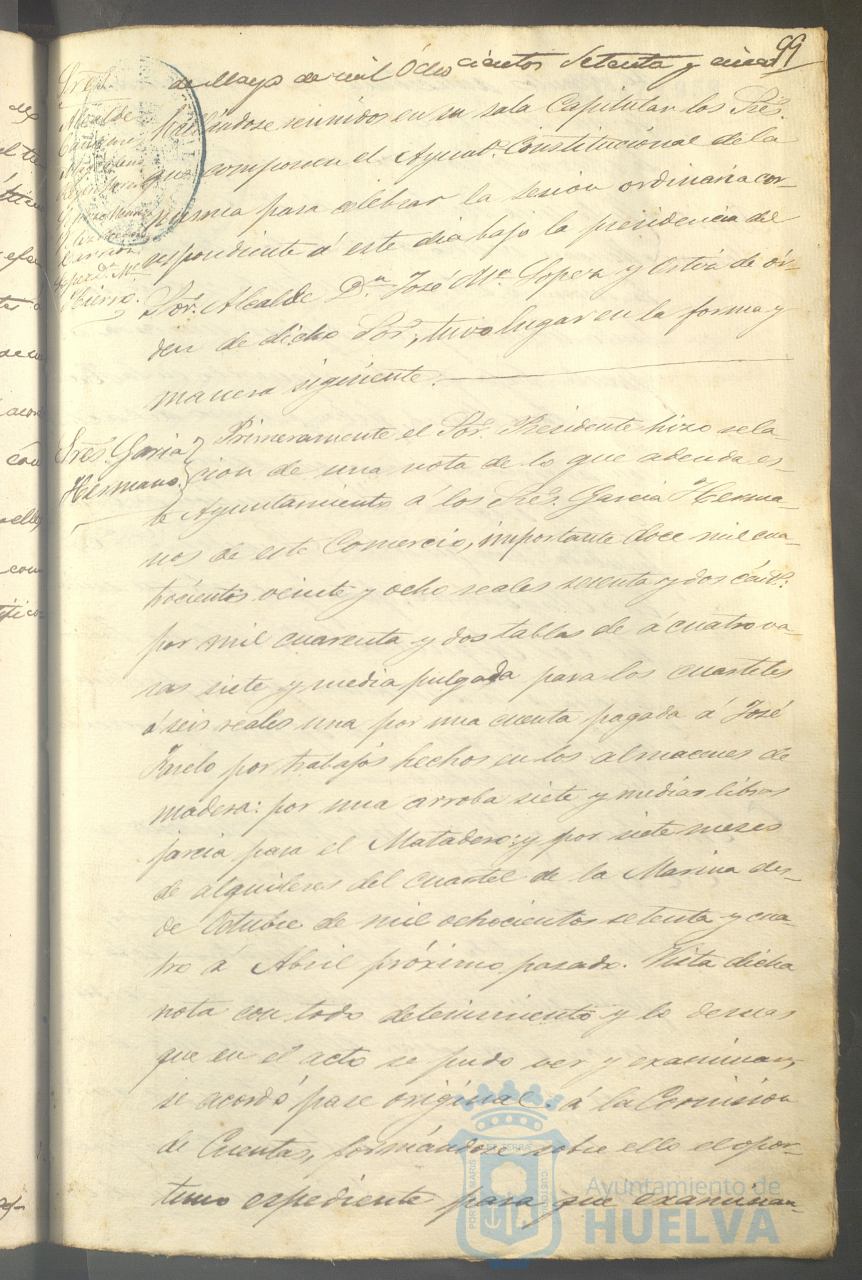 99
de Mayo de mil Ochocientos Setenta y cinco
Sres.
Alcalde
Carrion
Hierro.
hallándose reunidos en su sala Capitular los Sres.
que componen el Ayunt.º Constitucional de la
misma para celebrar la sesion ordinaria cor-
respondiente á este dia bajo la presidencia del
Sor. Alcalde Dn. José Mª Lopez y
den de dicho Sor, tuvo lugar en la forma y
manera siguiente.
Sres. Garcia
Hermano.
Primeramente el Sor. Presidente hizo rela
cion de una nota de lo que adeuda es-
te Ayuntamiento á los Sres. Garcia Herma-
nos de este Comercio, importante doce mil cua-
trocientos veinte y ocho reales setenta y dos cént.s
por mil cuarenta y dos tablas de á cuatro va-
ras siete y media pulgada para los cuarteles
á seis reales una por una cuenta pagada á José
por trabajos hechos en los almacenes de
madera: por una arroba siete y medias libras
jarcia para el Matadero: y por siete meses
de alquileres del cuartel de la Marina des-
de Octubre de mil ochocientos setenta y cua-
tro á Abril próximo pasado. Vista dicha
nota con todo detenimiento y lo demas
que en el acto se pudo ver y examinar,
se acordó pase original á la Comision
de Cuentas, formándose sobre ello el opor-
tuno espediente para que examinan-
PORTUS MARIS ET TERRAE CUSTODIA
Ayuntamiento de
HUELVA